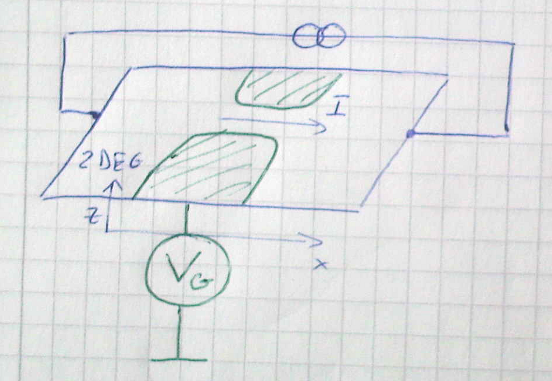 I
2DEG
z
x
V_G